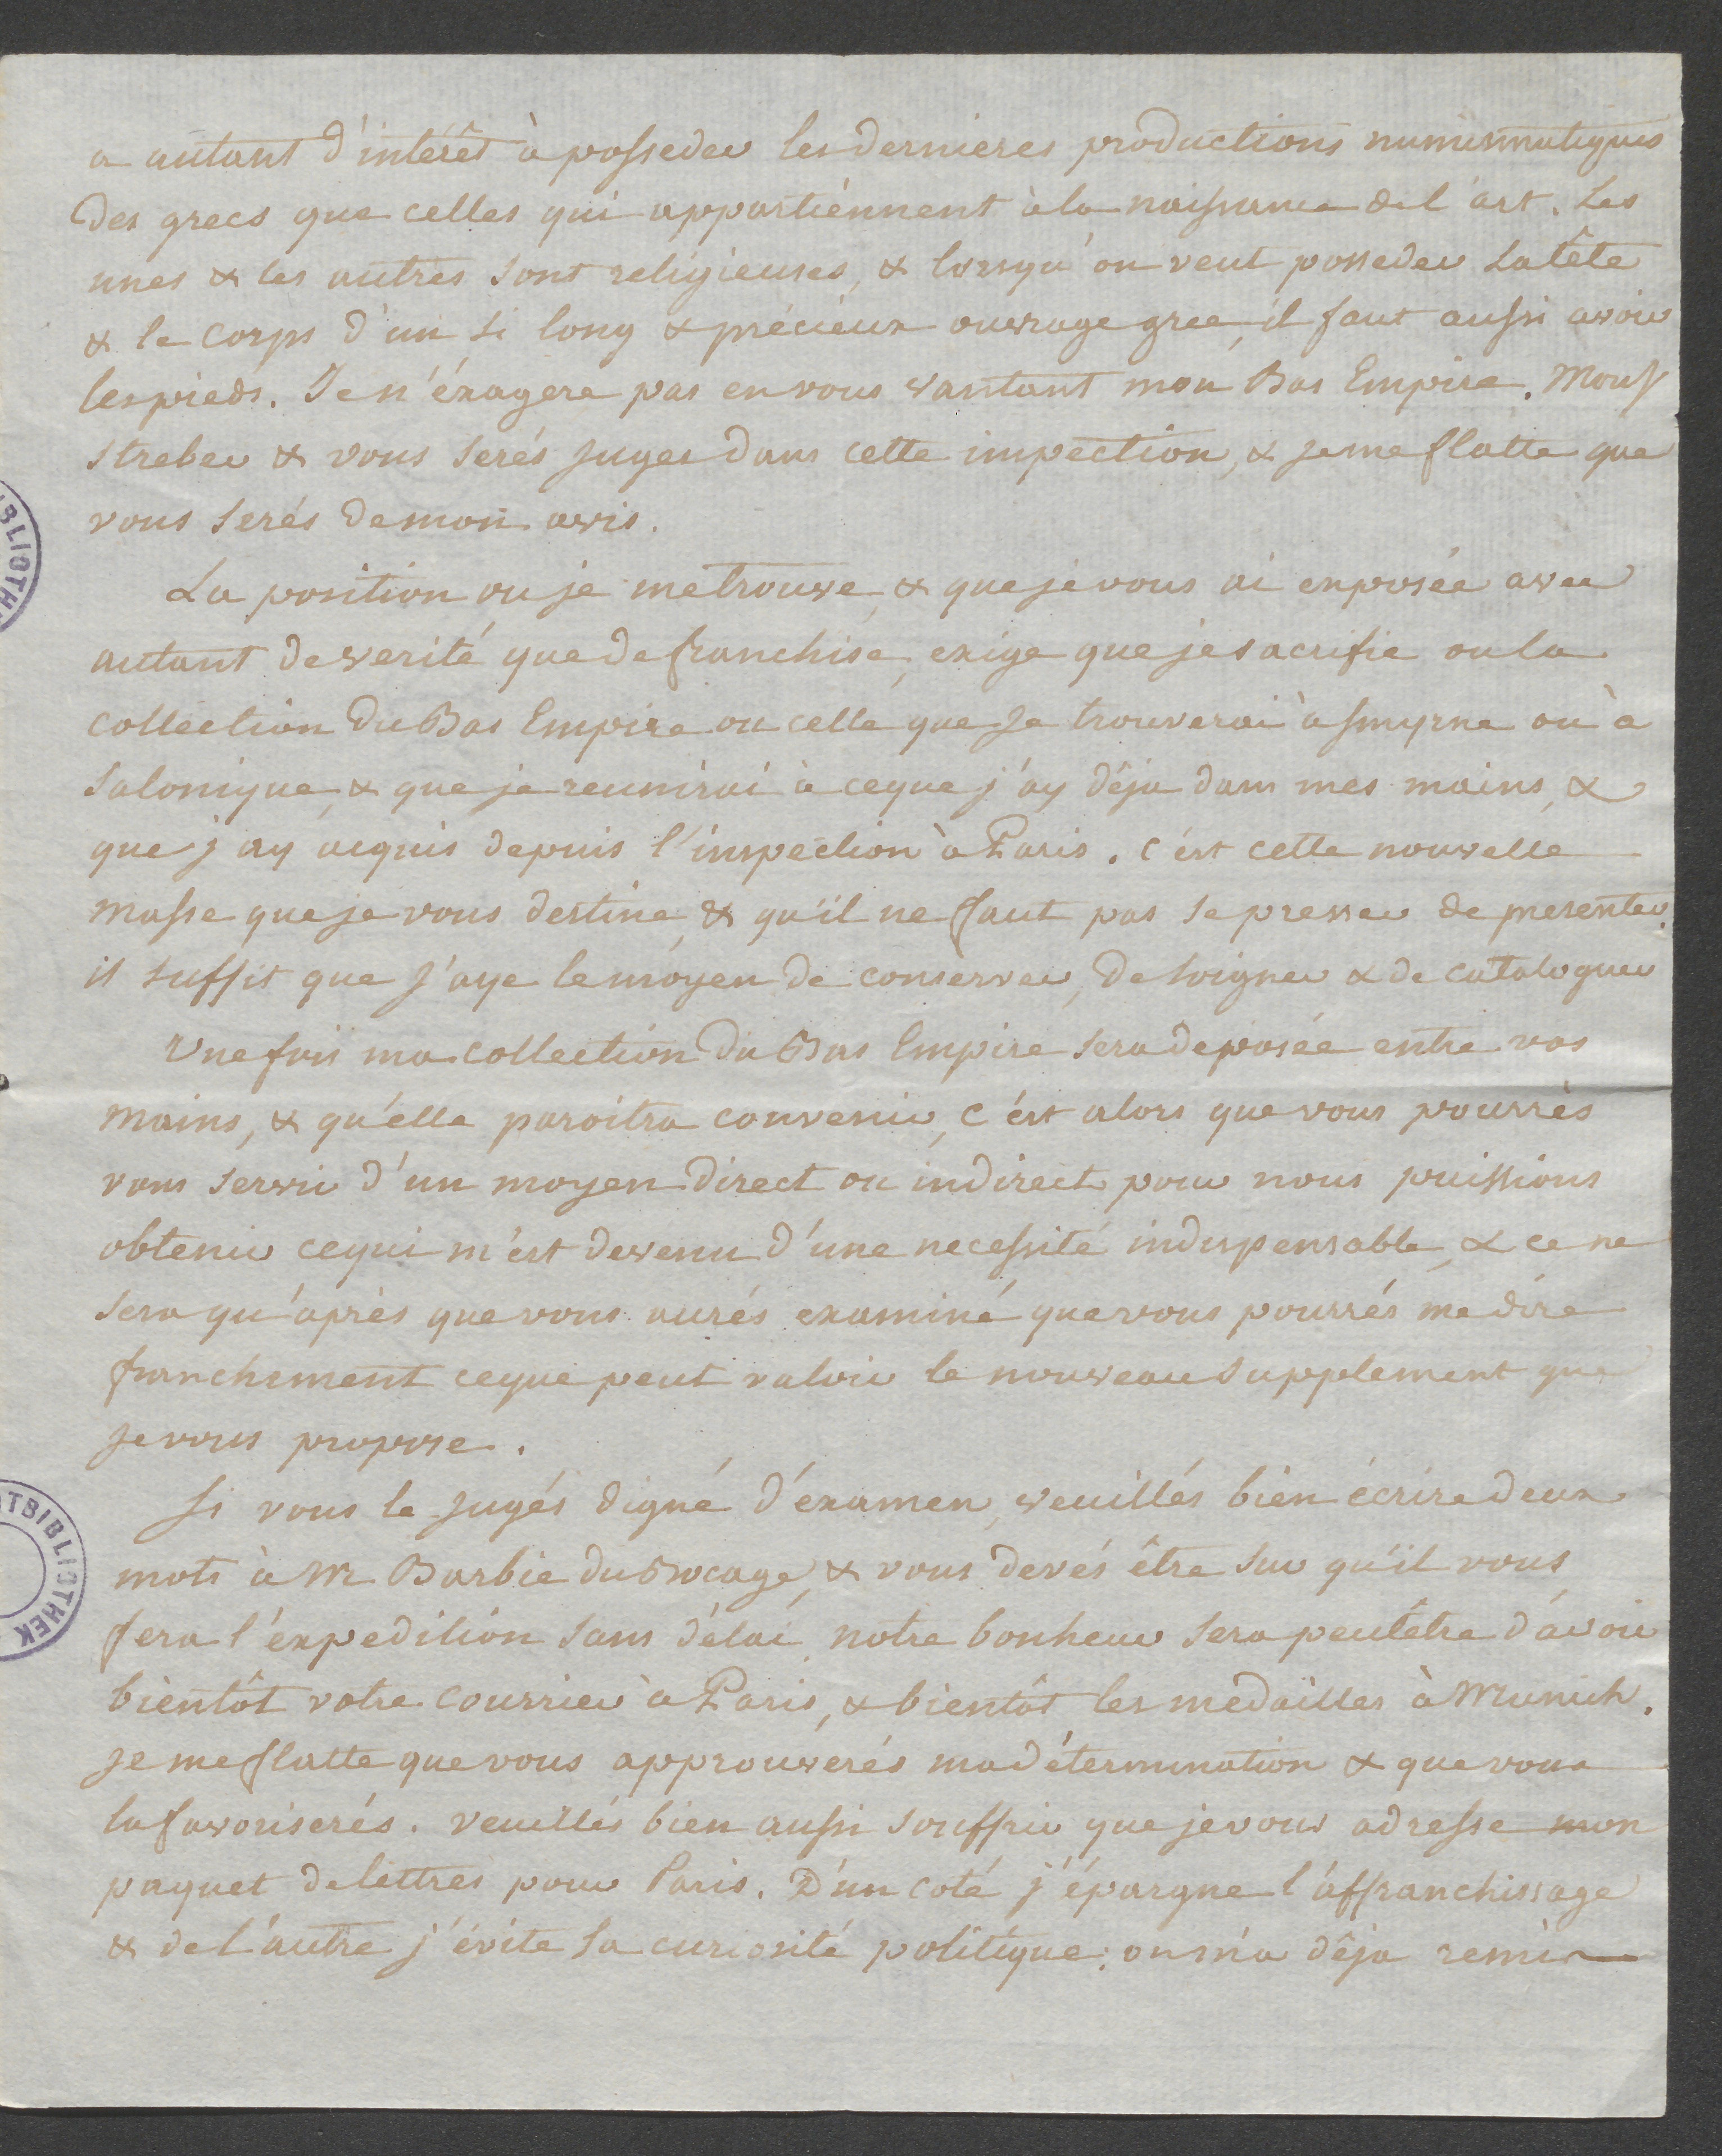 a autant d'intérêt à posseder les dernieres productions numismatiques
des grecs que celles qui appartiénnent à la naissance de l'art. Les
unes & les autres sont religieuses, & lorsqu'on veut posseder la tête
& le corps d'un si long & précieux ouvrage grec, il faut aussi avoir
les pieds. Je n'éxagere pas en vous vantant mon Bas Empire. Monsr
streber & vous serés juges dans cette inspection, & je me flatte que
vous serés de mon avis.
La position ou je me trouve, & que je vous ai exposée avec
autant de verité que de franchise, exige que je sacrifie ou la
collection du Bas Empire ou celle que je trouverai à Smyrne ou à
Salonique, & que je reunirai à ce que j'ay déja dans mes mains, &
que j'ay acquis depuis l'inspection à Paris. c'est cette nouvelle
masse que je vous destine, & qu'il ne faut pas se presser de presenter.
il suffit que j'aye le moyen de conserver, de soigner & de cataloguer
Une fois ma collection du Bas Empire sera deposée entre vos
mains, & qu'elle paroitra convenir, c'est alors que vous pourrés
vous servir d'un moyen direct ou indirect pour nous puissions
obtenir ce qui m'est devenu d'une necessité indispensable, & ce ne
sera qu'après que vous aurés examiné que vous pourrés me dire
franchement ce que peut valoir le nouveau supplement que
je vous propose.
Si vous le jugés digne d'éxamen, veuillés bien écrire deux
mots à Mr Barbie du Bocage, & vous devés être sur qu'il vous
fera l'éxpedition sans délai. notre bonheur sera peutêtre d'avoir
bientôt votre courrier à Paris, & bientôt les medailles à Munich.
je me flatte que vous approuverés ma détermination & que vous
la favoriserés. veuillés bien aussi souffrir que je vous adresse mon
paquet de lettres pour Paris. D'un coté j'épargne l'affranchissage
& de l'autre j'évite la curiosité politique: on m'a déja remis
BLIOTH
TBIBLIOTHEK